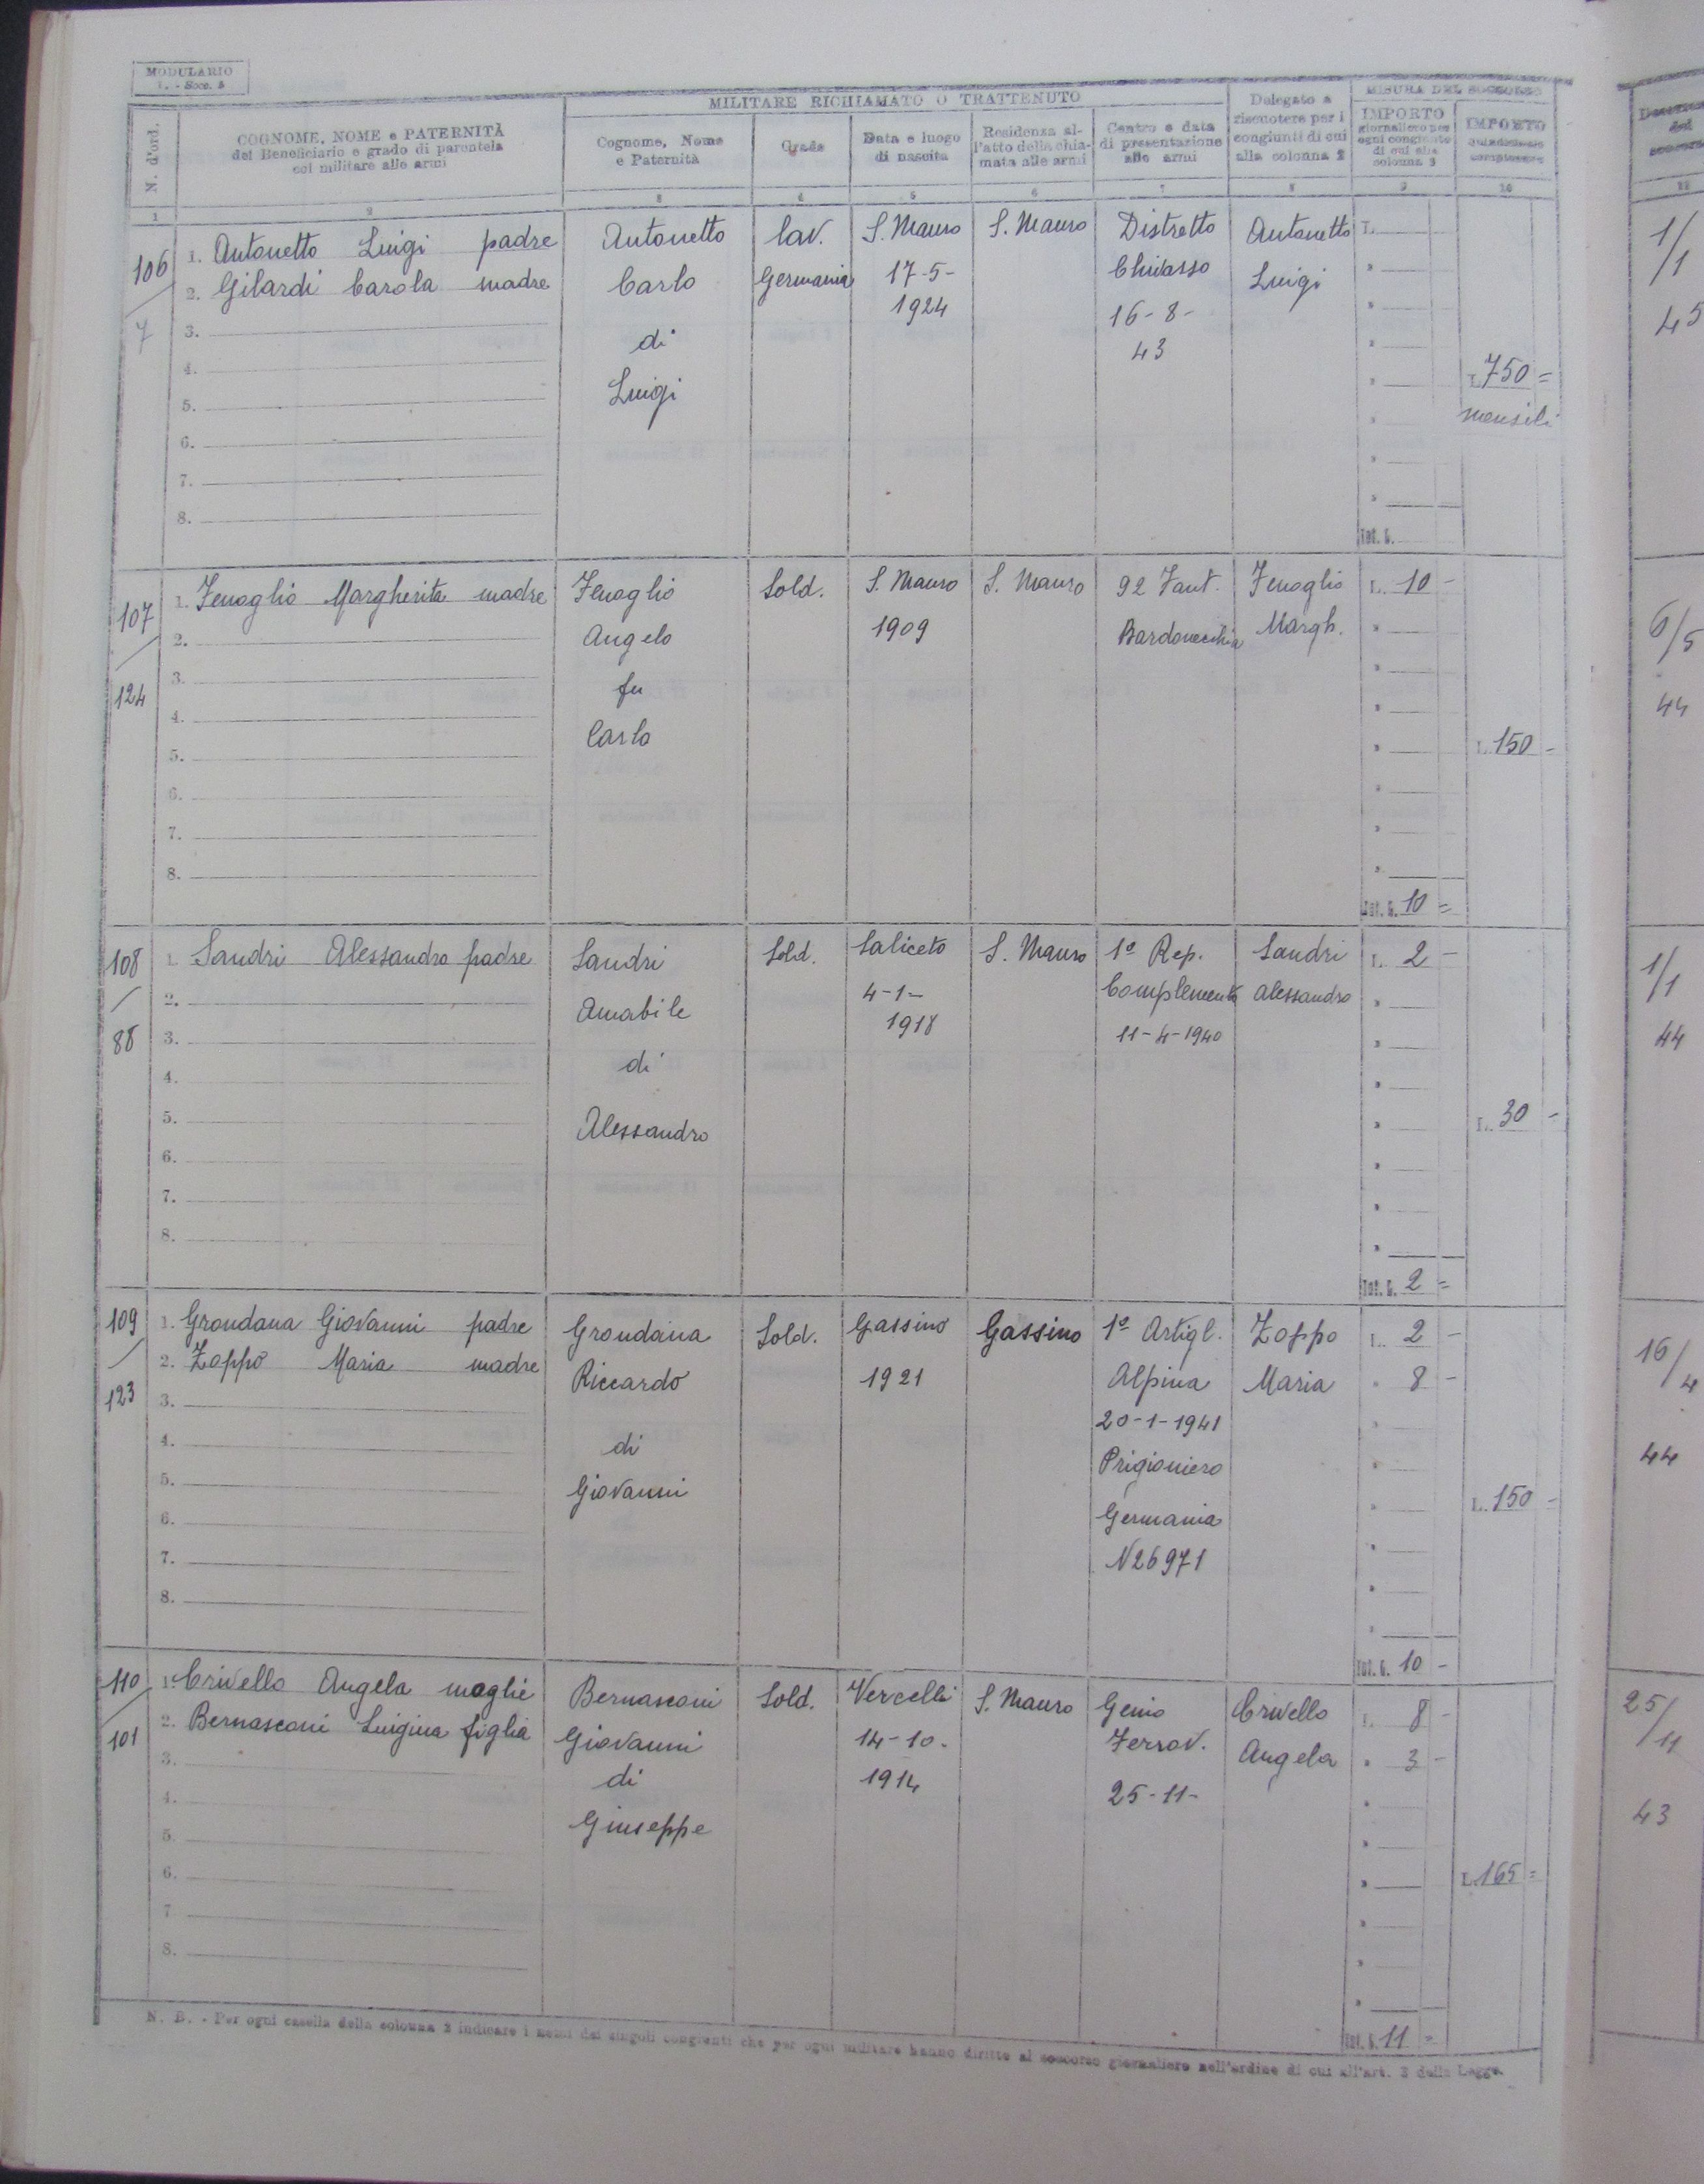 MODULARIO
MILITARE RICHIAMATO O TRATTENUTO
MISURA DEL SOCCORSO
N. d'ord.
COGNOME, NOME e PATERNITÀ
del Beneficiario e grado di parentela
col militare alle armi
Cognome, Nome
e Paternità
Grado
Data e luogo
di nascita
Residenza al-
l'atto della chia-
mata alle armi
Centro e data
di presentazione
alle armi
Delegato a
riscuotere per i
congiunti di cui
alla colonna 2
IMPORTO
giornaliero per
ogni congiunto
di cui alla
colonna 2
IMPORTO
1 2 3 4 5 6 7 8 9 10
106
7
1. Antonetto Luigi padre
2. Gilardi Carola madre
3.
4.
5.
6.
7.
8.
Antonetto
Carlo
di
Luigi
lav.
Germania
S. Mauro
17-5-
1924
S. Mauro
Distretto
Chivasso
16-8-
43
Antonetto
Luigi
L.
Tot. G.
L. 750 =
mensili
1/1
45
107
124
1. Fenoglio Margherita madre
2.
3.
4.
5.
6.
7.
8.
Fenoglio
Angelo
fu
Carlo
Sold.
S. Mauro
1909
S. Mauro
92 Fant.
Bardonecchia
Fenoglio
Margh.
L. 10 -
Tot. G. 10 =
L. 150 -
6/5
44
108
88
1. Sandri Alessandro padre
2.
3.
4.
5.
6.
7.
8.
Sandri
Amabile
di
Alessandro
Sold.
Saliceto
4-1-
1918
S. Mauro
1º Rep.
Complementi
11-4-1940
Sandri
Alessandro
L. 2 -
Tot. G. 2 =
L. 30 -
1/1
44
109
123
1. Grondana Giovanni padre
2. Zoppo Maria madre
3.
4.
5.
6.
7.
8.
Grondana
Riccardo
di
Giovanni
Sold.
Gassino
1921
Gassino
1º Artigl.
Alpina
20-1-1941
Prigioniero
Germania
N26971
Zoppo
Maria
L. 2 -
" 8 -
Tot. G. 10 -
L. 150 -
16/4
44
110
101
1. Crivello Angela moglie
2. Bernasconi Luigina figlia
3.
4.
5.
6.
7
8.
Bernasconi
Giovanni
di
Giuseppe
Sold.
Vercelli
14-10-
1914
S. Mauro
Genio
Ferrov.
25-11-
Crivello
Angela
L. 8 -
" 3 -
Tot. G. 11 =
L. 165 =
25/11
43
N. B. - Per ogni casella della colonna 2 indicare i nomi dei singoli congiunti che per ogni militare hanno diritto al soccorso giornaliero nell'ordine di cui all'art. 3 della Legge.